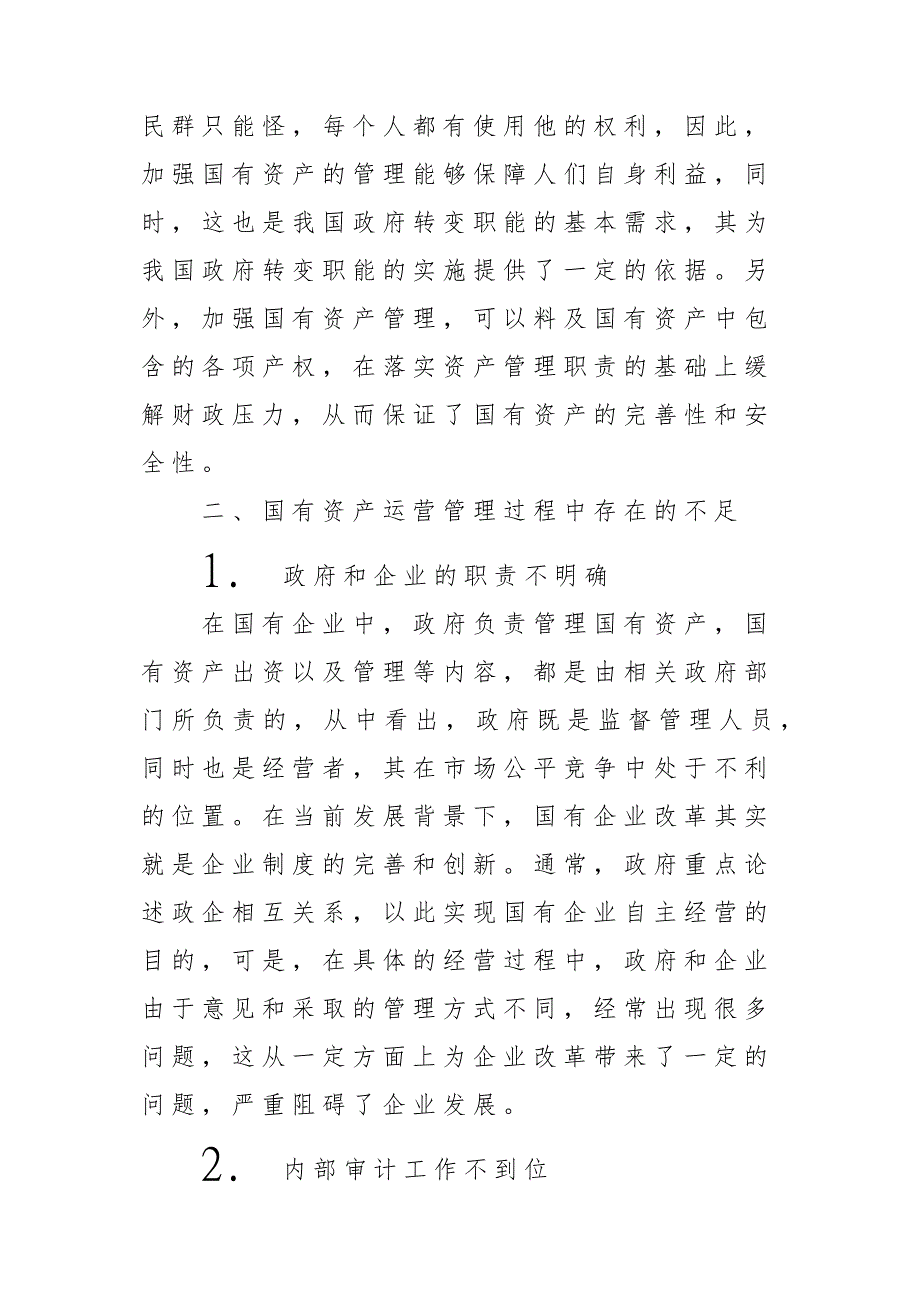 民群只能怪，每个人都有使用他的权利，因此，
加强国有资产的管理能够保障人们自身利益，同
时，这也是我国政府转变职能的基本需求，其为
我国政府转变职能的实施提供了一定的依据。另
外，加强国有资产管理，可以料及国有资产中包
含的各项产权，在落实资产管理职责的基础上缓
解财政压力，从而保证了国有资产的完善性和安
全性。
二、国有资产运营管理过程中存在的不足
1. 政府和企业的职责不明确
在国有企业中，政府负责管理国有资产，国
有资产出资以及管理等内容，都是由相关政府部
门所负责的，从中看出，政府既是监督管理人员，
同时也是经营者，其在市场公平竞争中处于不利
的位置。在当前发展背景下，国有企业改革其实
就是企业制度的完善和创新。通常，政府重点论
述政企相互关系，以此实现国有企业自主经营的
目的，可是，在具体的经营过程中，政府和企业
由于意见和采取的管理方式不同，经常出现很多
问题，这从一定方面上为企业改革带来了一定的
问题，严重阻碍了企业发展。
2. 内部审计工作不到位